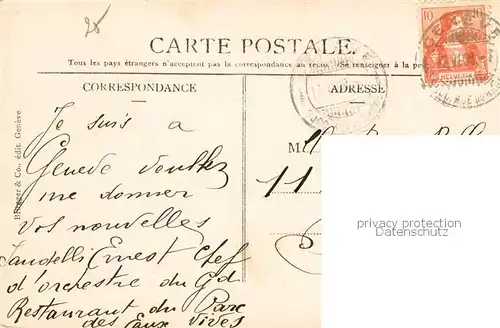 25
CARTE POSTALE.
Tous les pays étrangers n'acceptent pas la correspondance au recto. (Se renseigner à la
CORRESPONDANCE
ADRESSE
10 10
HELVETIA
Je suis a
Genève veuillez
me donner
vos nouvelles
Jandelli Ernest Chef
d'orchestre du Gd
Restaurant du Parc
des Eaux Vives
11
& Co., édit. Genève
privacy protection
Datenschutz